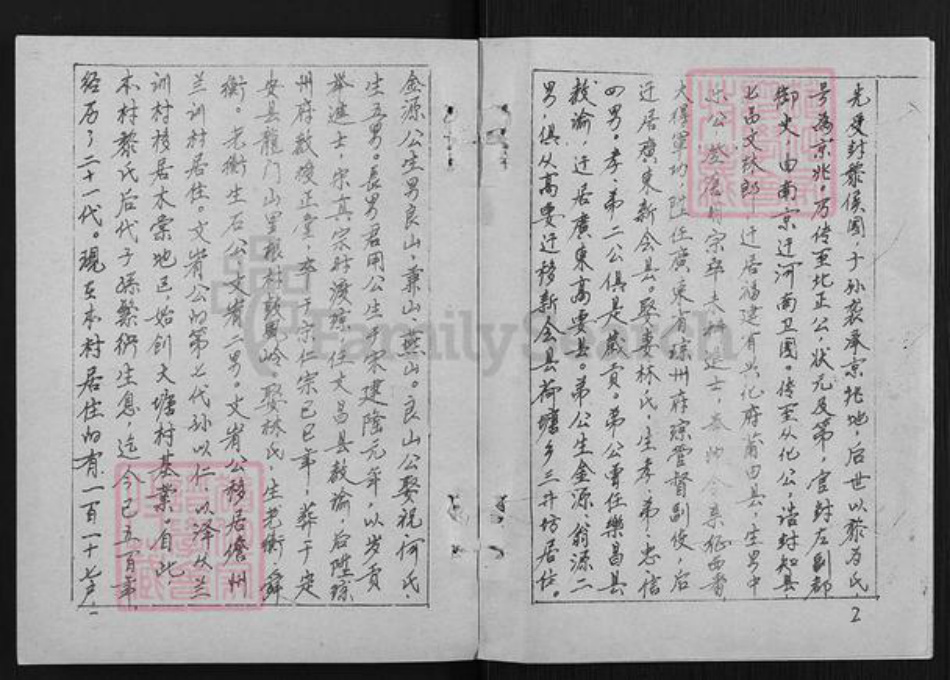 先受封黎侯国,子孙袭承京兆地,后世以黎为氏,
号为京兆。乃传至北正公,状元及第,官封左副都
御史,由南京迁河南卫国。传至从化公,诰封知县
七品文林郎,迁居福建省兴化府莆田县,生男中
公,登宗辛未科进士,奉令系征西番,
大得军功,陞任廣东省琼州府琼管督副使,后
迁居廣东新会县。娶妻林氏,生孝、弟、忠、信
四男。孝、弟二公俱是歲贡。弟公曾任樂昌县
教谕,迁居廣東高要县。弟公生金源、翁源二
男,俱从高要迁移新会县荷塘乡三丹坊居住。
2
金源公生男良山,兼山,燕山。良山公娶祝、何氏,
生五男。長男君用公生于宋建隆元年,以岁贡
举進士,宋真宗时渡琼,任文昌县教谕,后陞琼
州府教授正堂,卒于宋仁宗己巳年,葬于定
安县龍门山里根村鼓男岭。娶林氏,生老衡、舜
衡。老衡生石公、文肖二男。文肖公移居儋州
兰训村居住。文肖公的第七代孙以仁、以泽从兰
训村移居本棠地区,始创大塘村基業,自此
本村黎氏后代子孫繁衍生息,迄今已五百年,
经历了二十一代。現在本村居住的有一百一十七户,
FamilySearch